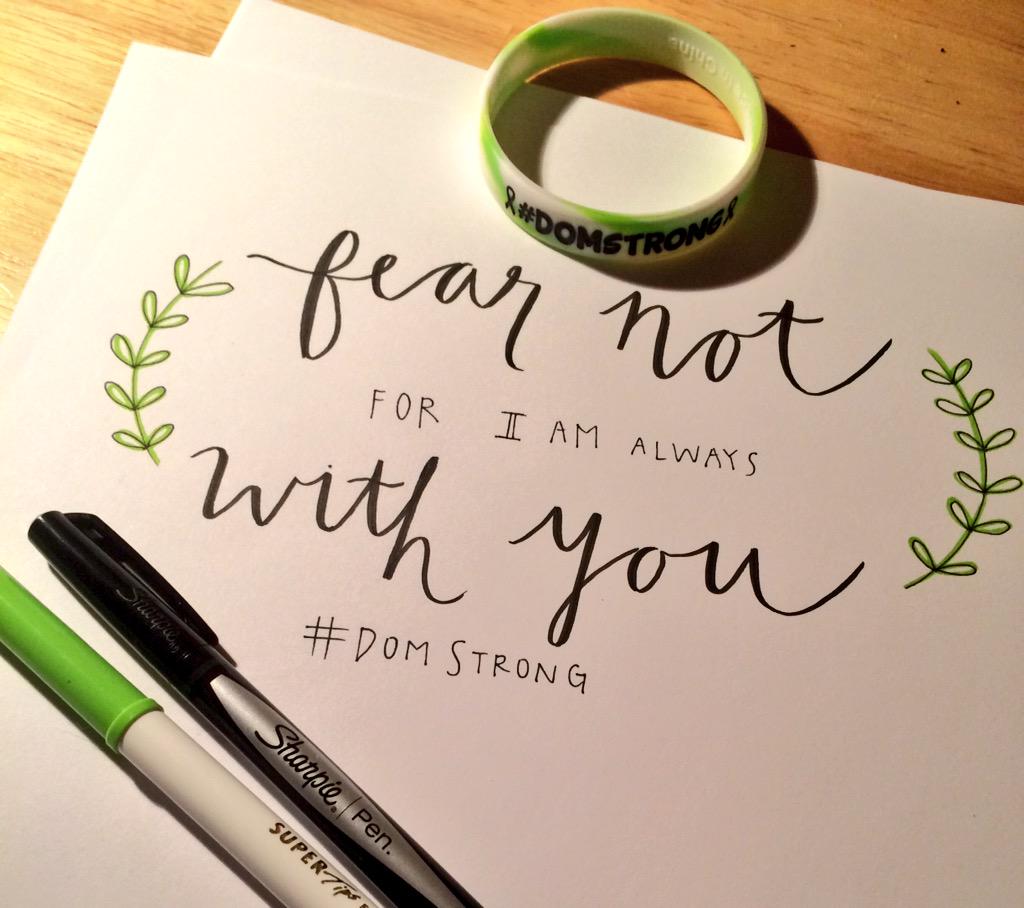 in China
#DOMSTRONG
fear not
FOR I AM ALWAYS
with you
#DOM STRONG
Sharpie
Sharpie. Pen.
SUPERTips